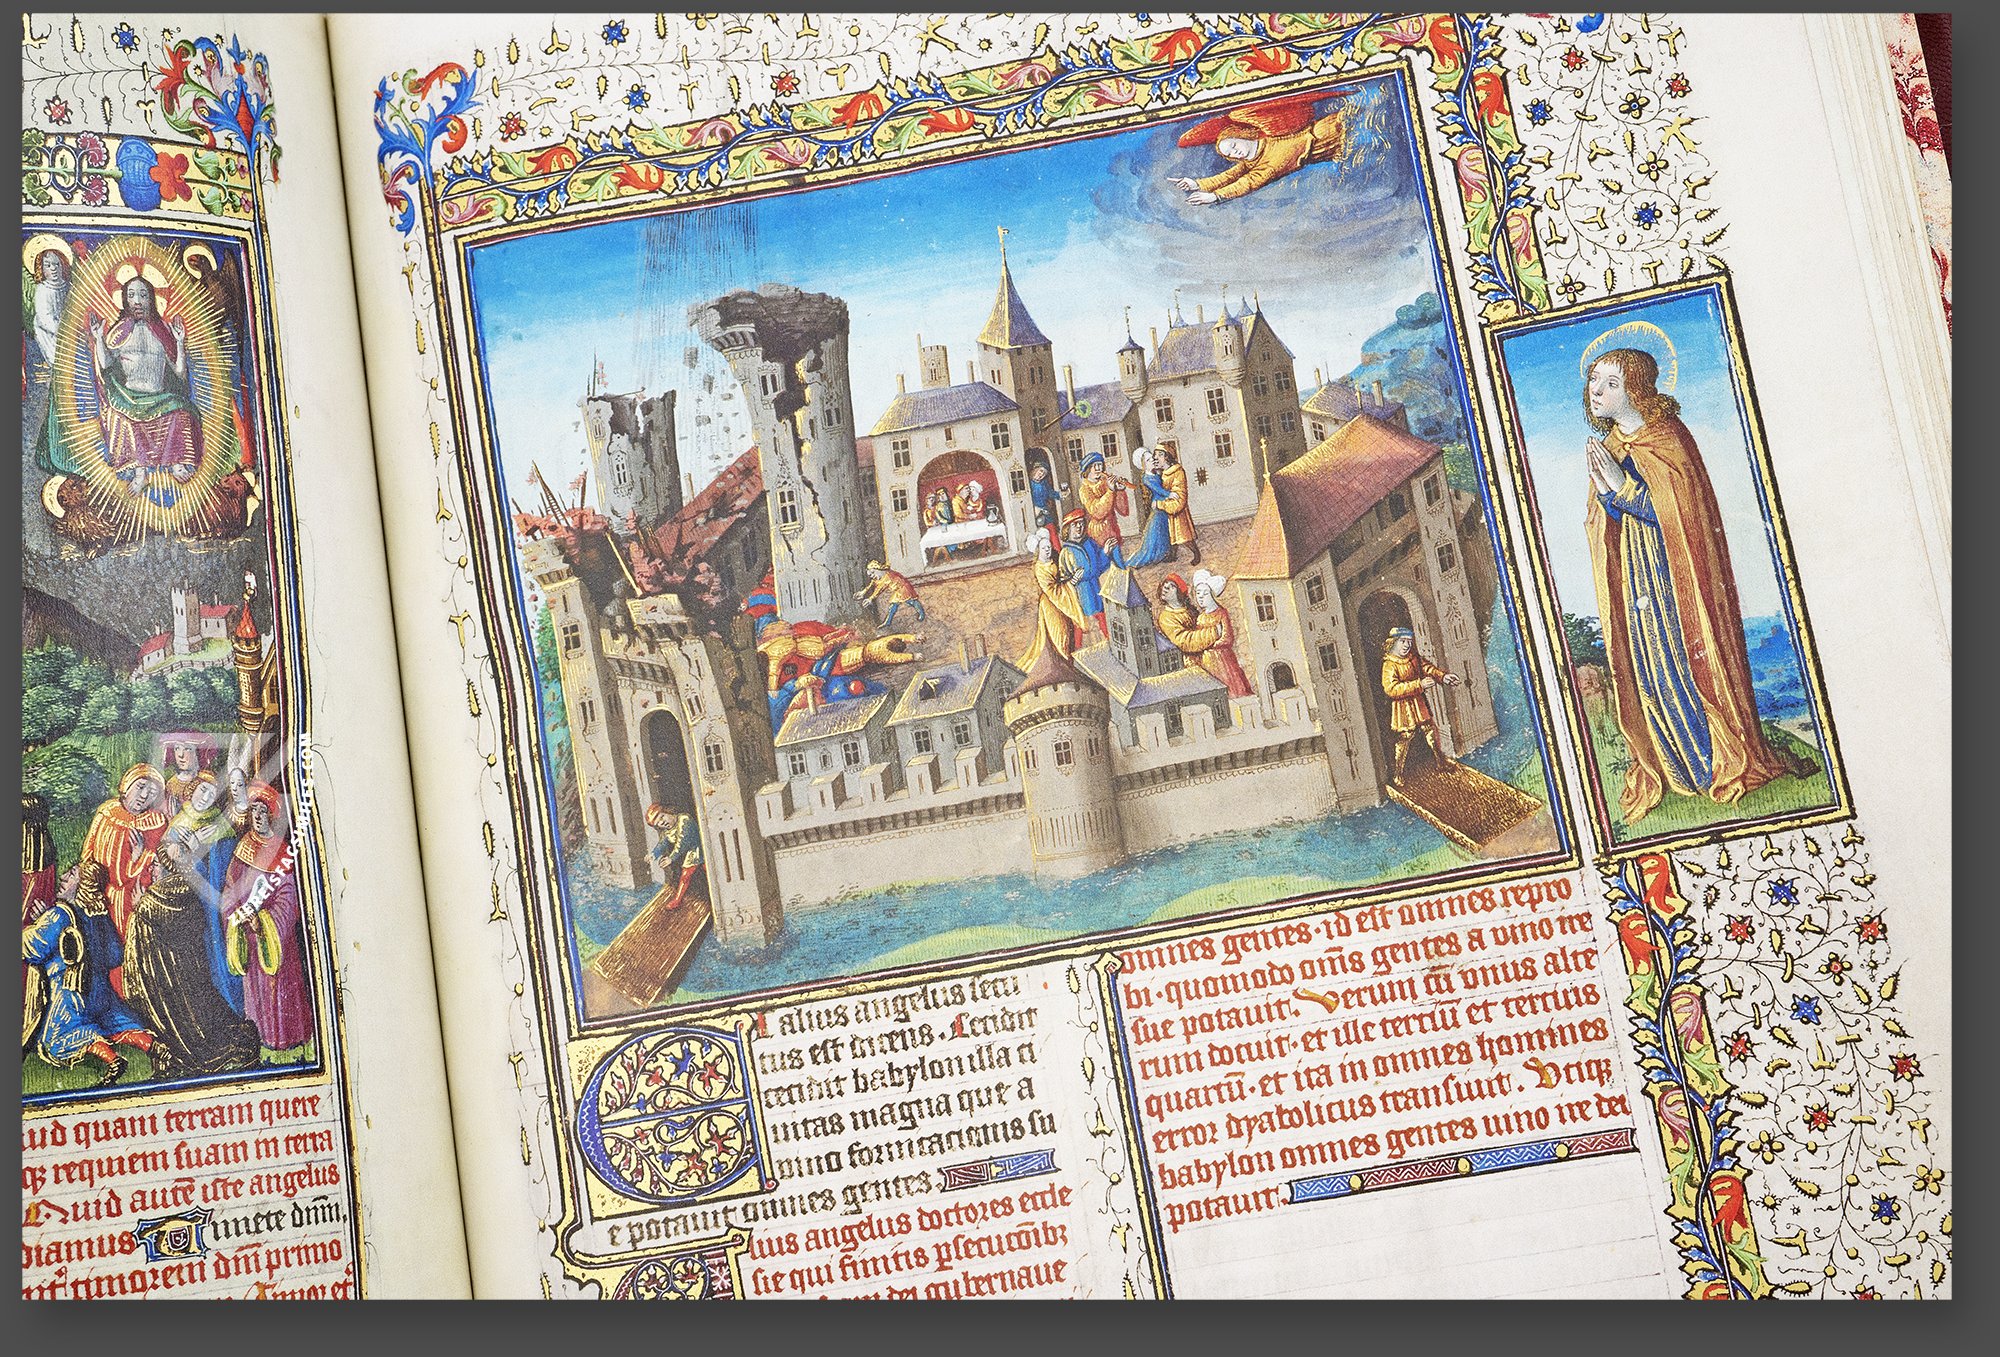 ud quam terram quere
qz requiem suam in terra
Quid autē iste angelus
Timete dnm̄.
diamus
timorem dnm̄ primo
Timor et
Et alius angelus secu
tus est dicens. Cecidit
cecidit babylon illa ci
uitas magna que a
uino fornicationis su
e potauit omnes gentes.
lius angelus doctores eccle
sie qui finitis ꝑsecutōibz
dei gubernaue
omnes gentes. id est omnes repro
bi. quomodo om̄s gentes a uino ire
sue potauit. Verum cū vnus alte
rum docuit. et ille terciū et tertius
quartū. et ita in omnes homines
error dyabolicus transiuit. Vtiqz
babylon omnes gentes uino ire dei
potauit.
ZIEREISFACSIMILES.COM